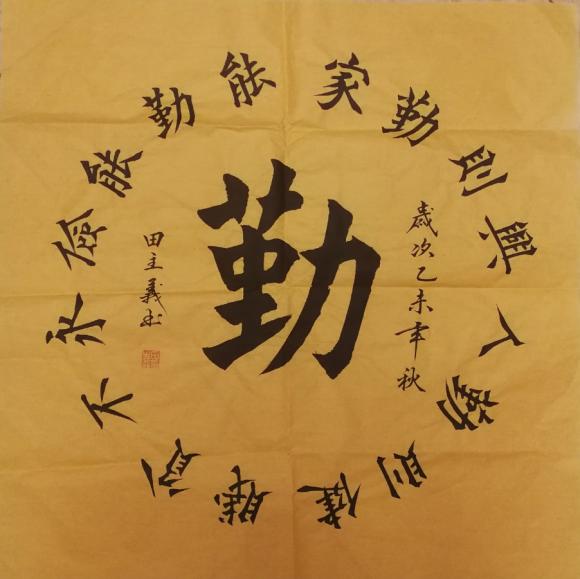 家勤則興人勤則健
能勤能儉永不貧賤
勤
歲次乙未年秋
田主義书